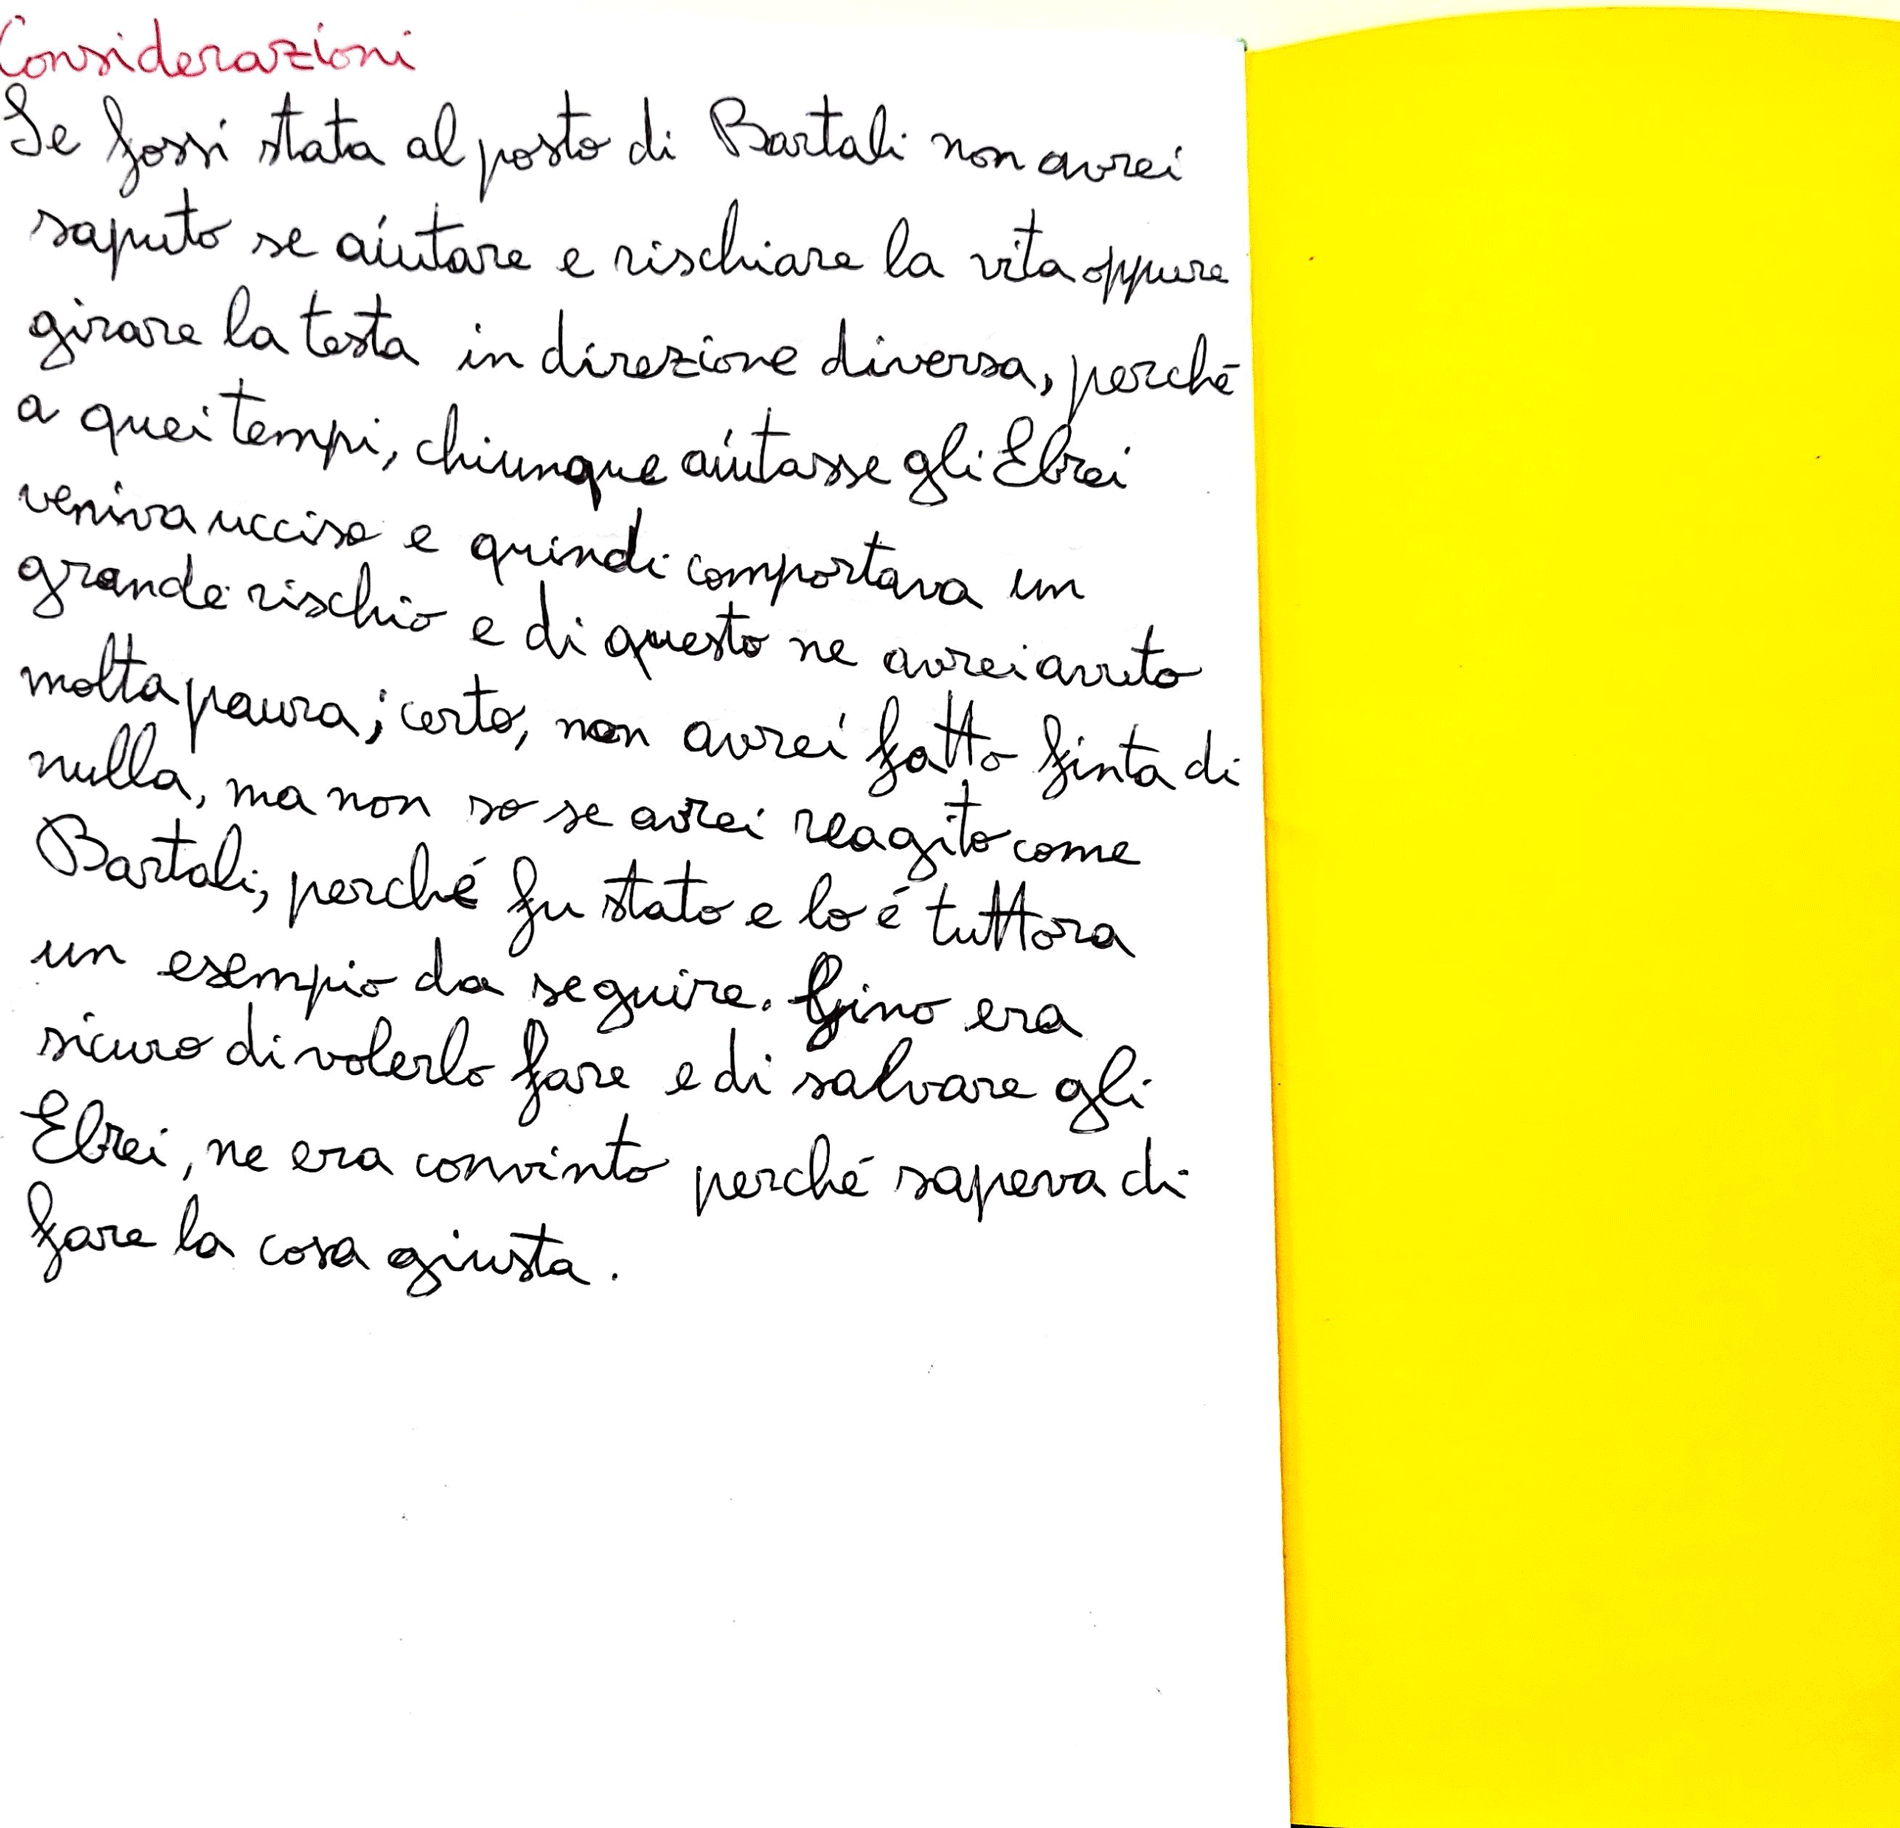 Considerazioni
Se fossi stata al posto di Bartali non avrei
saputo se aiutare e rischiare la vita oppure
girare la testa in direzione diversa, perché
a quei tempi, chiunque aiutasse gli Ebrei
veniva ucciso e quindi comportava un
grande rischio e di questo ne avrei avuto
molta paura; certo, non avrei fatto finta di
nulla, ma non so se avrei reagito come
Bartali, perché fu stato e lo é tuttora
un esempio da seguire. Gino era
sicuro di volerlo fare e di salvare gli
Ebrei, ne era convinto perché sapeva di
fare la cosa giusta.